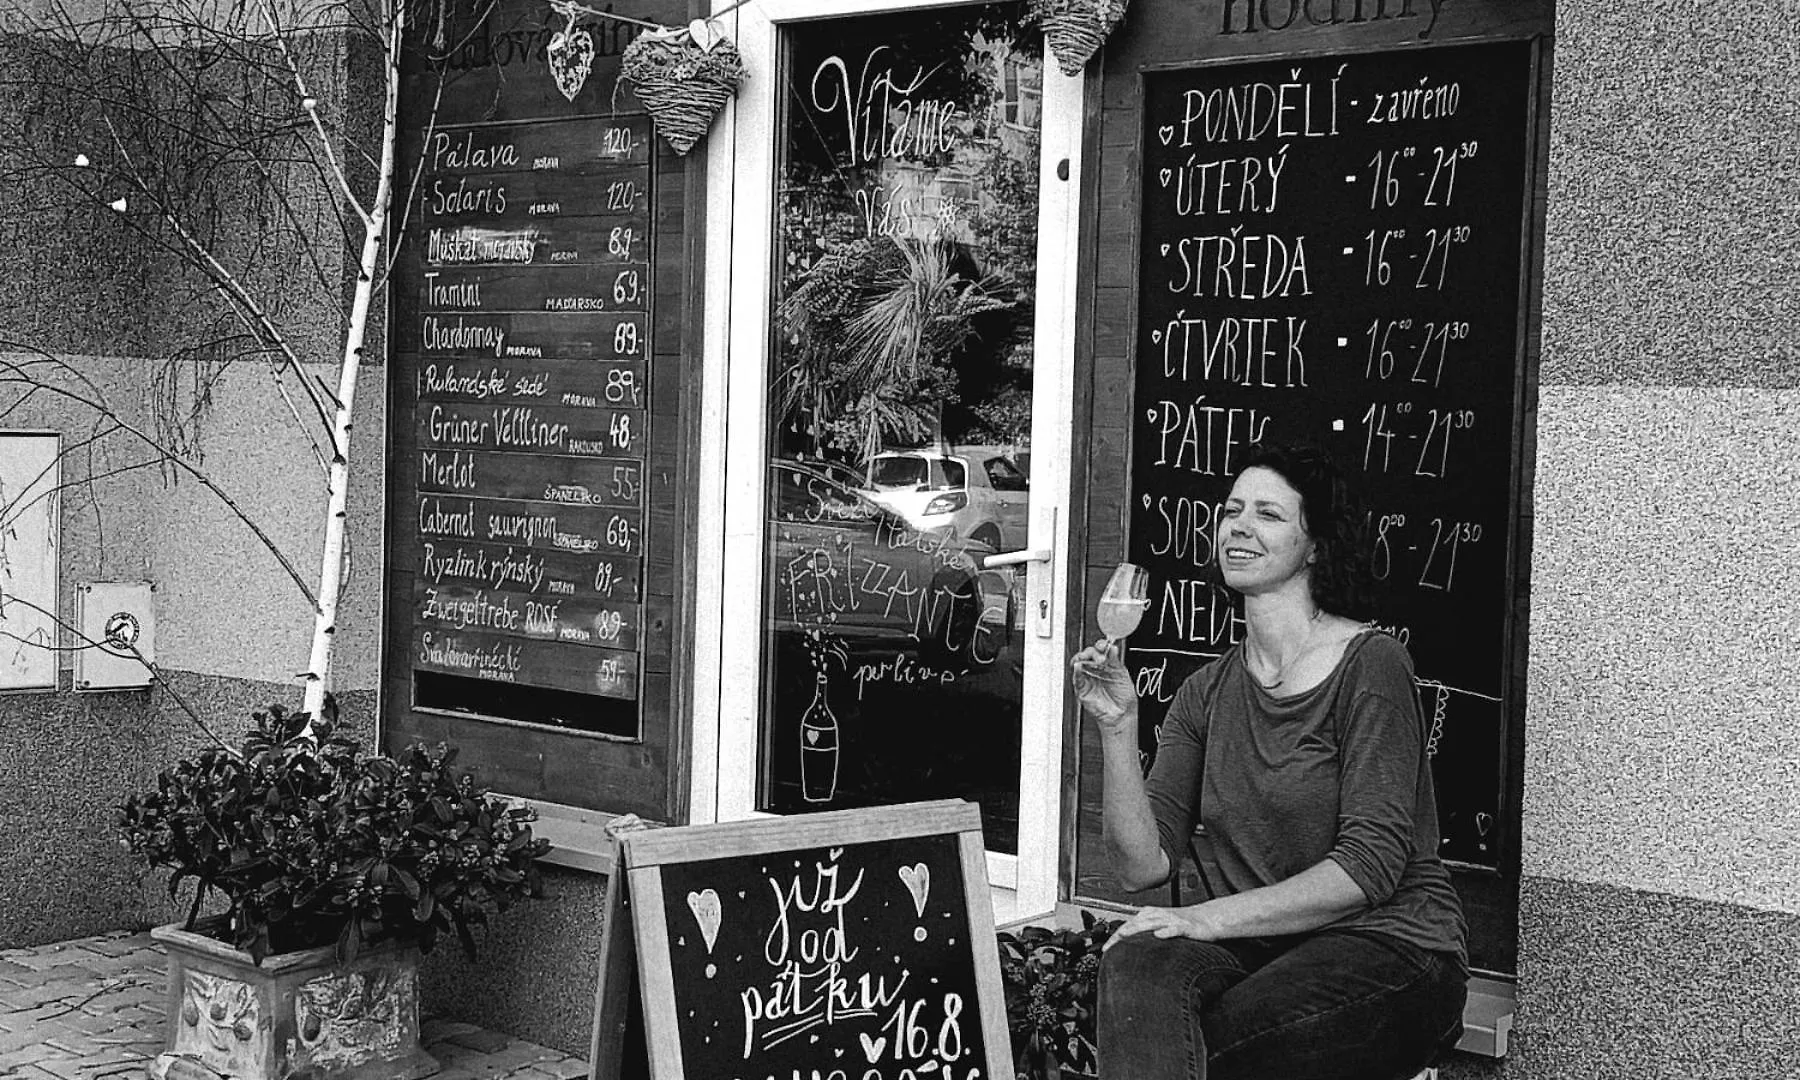 hodiny
Pálava MORAVA 120,-
Solaris MORAVA 120,-
Muškát moravský MORAVA 89,-
Tramini MAĎARSKO 69,-
Chardonnay MORAVA 89,-
Rulandské šedé MORAVA 89,-
Grüner Veltliner RAKOUSKO 48,-
Merlot ŠPANĚLSKO 55,-
Cabernet sauvignon ŠPANĚLSKO 69,-
Ryzlink rýnský MORAVA 89,-
Zweigeltrebe ROSÉ MORAVA 89,-
Svatovavřinecké MORAVA 59,-
Vítáme
Vás
Italské
FRIZZANTE
perlivé
PONDĚLÍ - zavřeno
ÚTERÝ - 16°° - 21³⁰
STŘEDA - 16°° - 21³⁰
ČTVRTEK - 16°° - 21³⁰
PÁTEK - 14°° - 21³⁰
SOBO 8°° - 21³⁰
NEDĚ
od
již
od
pátku
16.8.